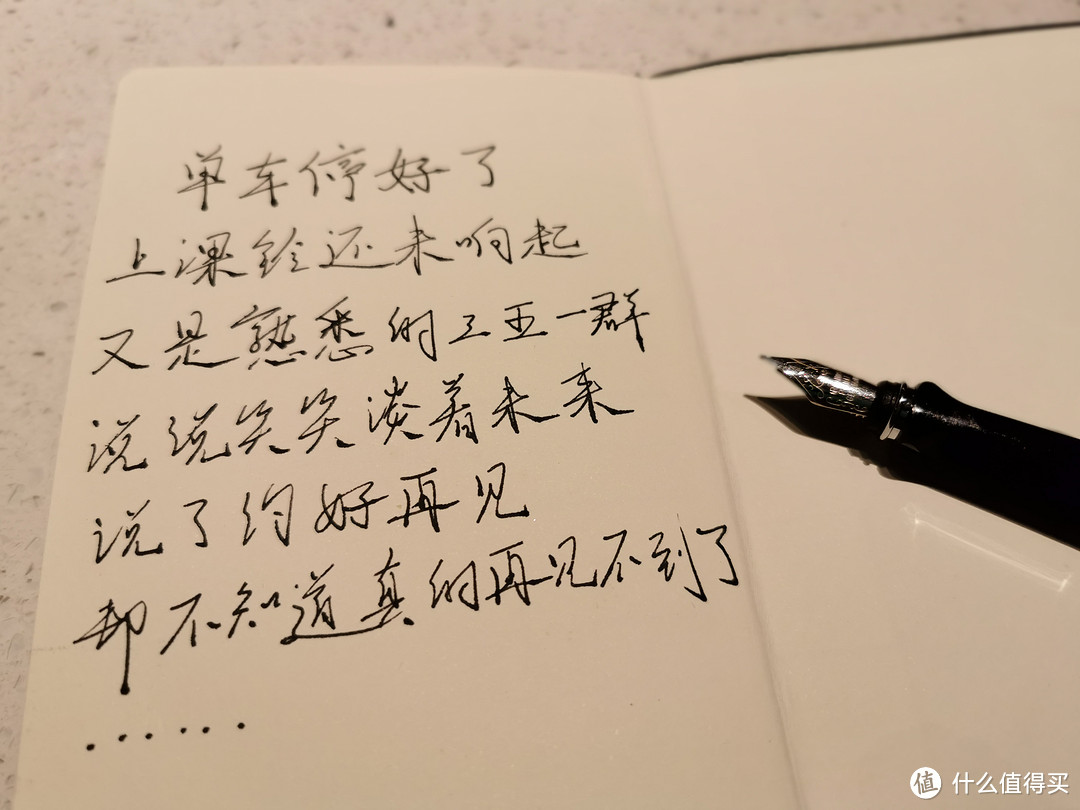 单车停好了
上课铃还未响起
又是熟悉的三五一群
说说笑笑谈着未来
说了约好再见
却不知道真的再见不到了
······
值 什么值得买